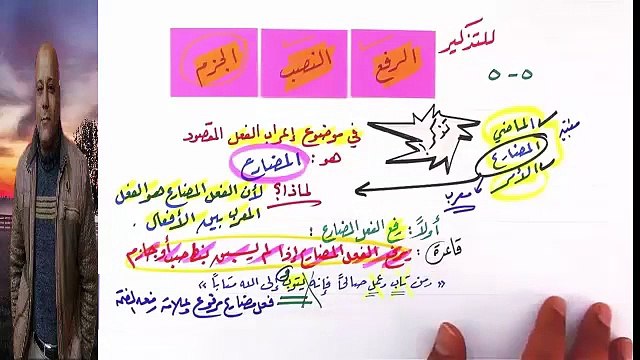 للتذكير
الرفع النصب الجزم
الماضي
المضارع
الأمر
معرب
في موضوع إعراب الفعل المقصود
هو: المضارع
لماذا؟ لأن الفعل المضارع هو الفعل
المعرب بين الأفعال.
أولاً: رفع الفعل المضارع:
قاعدة: يرفع الفعل المضارع إذا لم يسبق بناصب أو جازم
« ومن تاب وعمل صالحاً فإنه يتوب إلى الله متاباً »
فعل مضارع مرفوع وعلامة رفعه الضمة